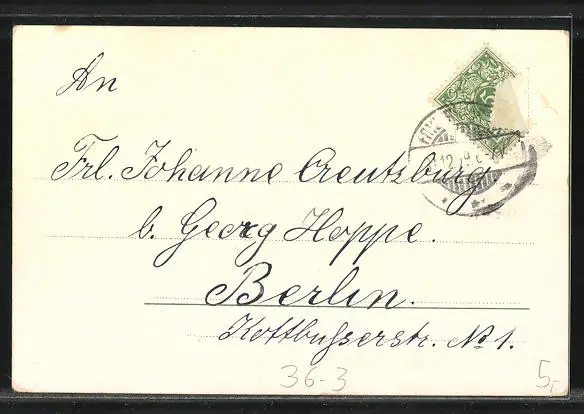 An
12
Frl. Johanne Creutzburg
b. Georg Hoppe.
Berlin.
Kottbusserstr. No 1.
36-3
5,-